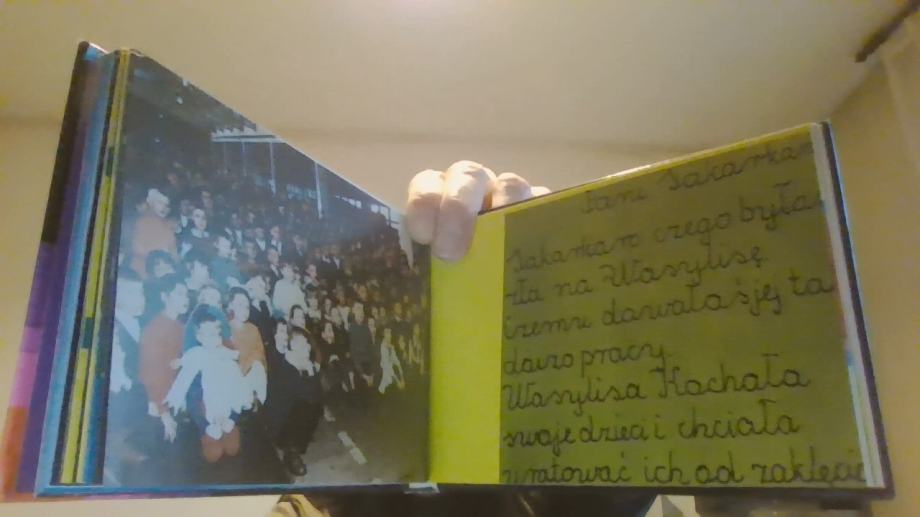 Pani
czego była
zła na Wasylisę
czemu dawałaś jej ta
dużo pracy.
Wasylisa Kochała
swoje dzieci i chciała
uratować ich od zaklęcia